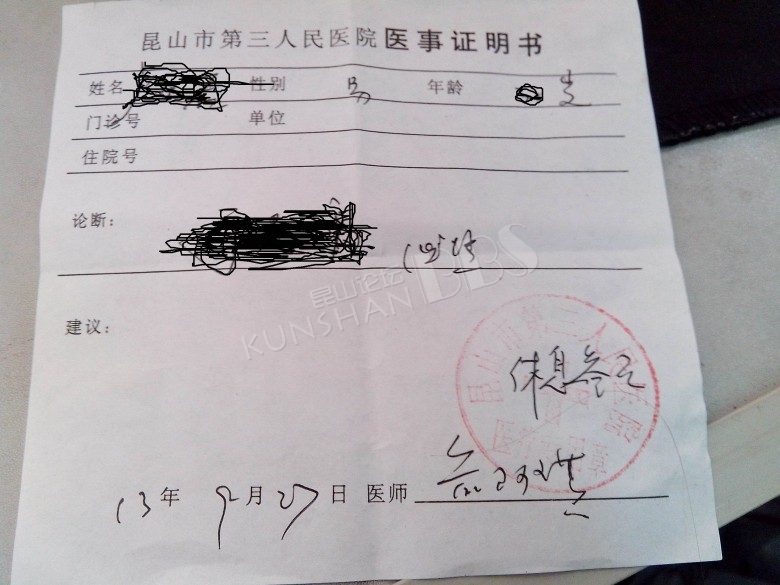 昆山市第三人民医院医事证明书
姓名 性别 男 年龄
门诊号 单位
住院号
论断：
昆山论坛 BBS
KUNSHAN
建议：
昆山市第三人民医院
休息叁天
13年 9月 27日 医师